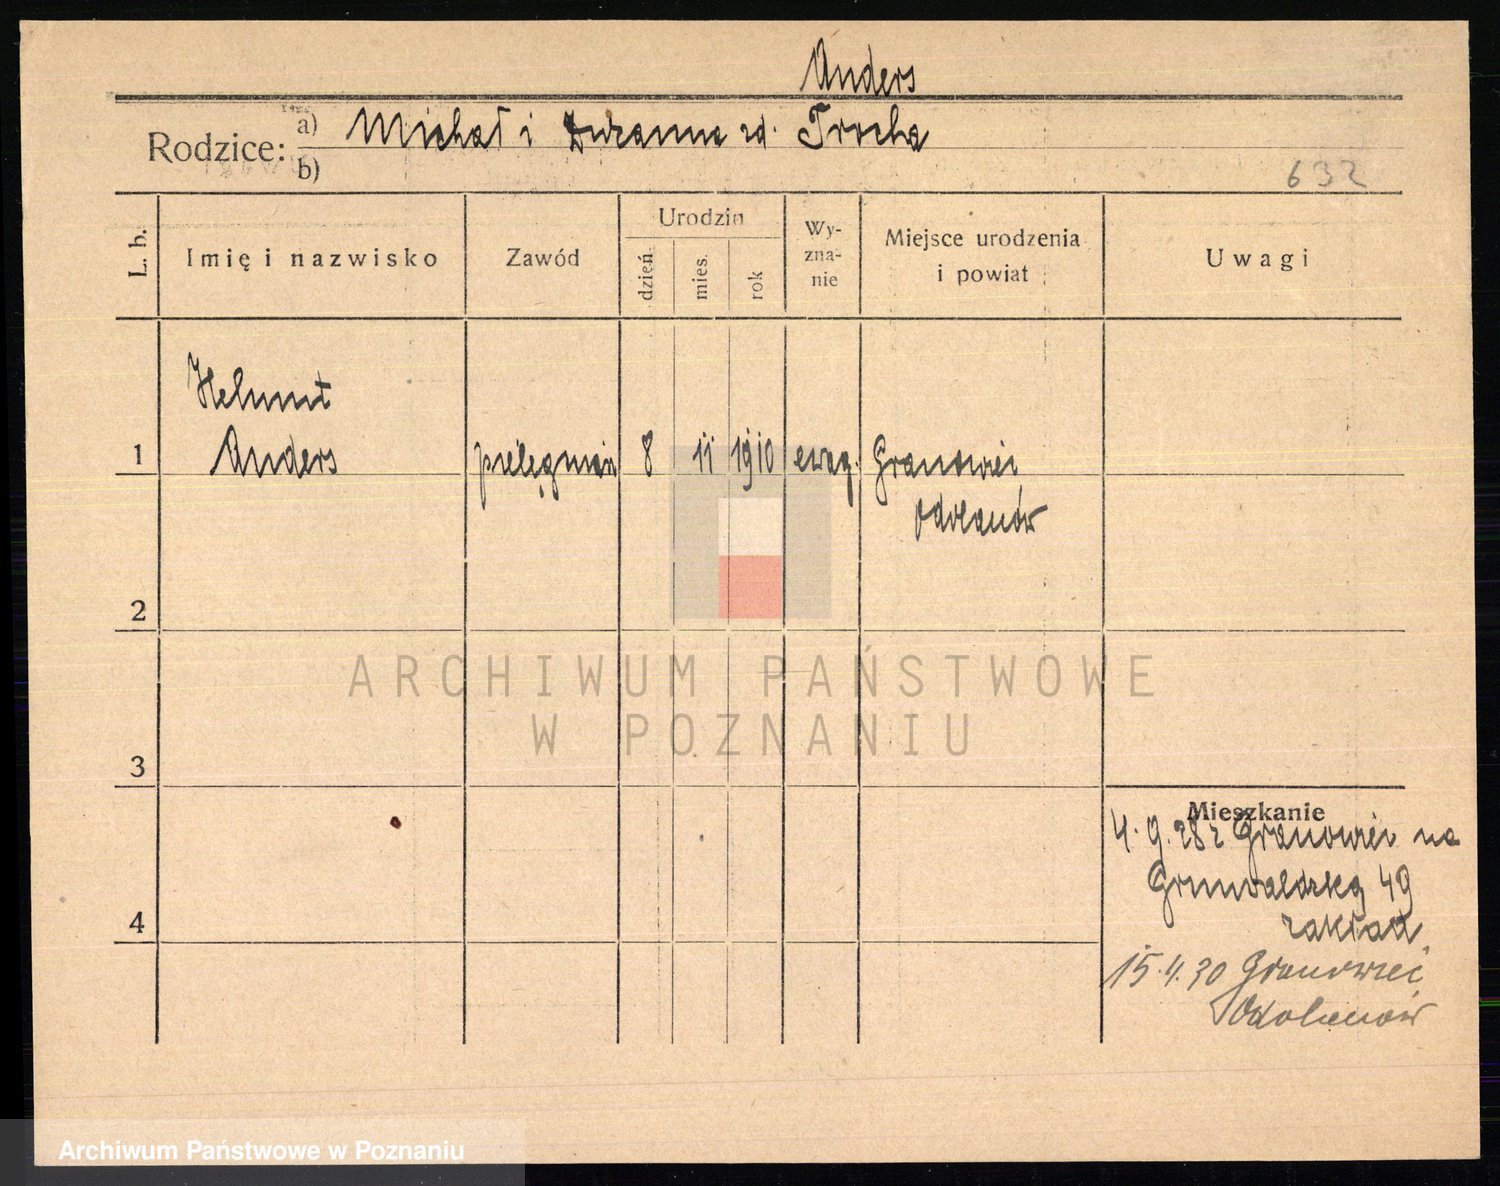 Anders
Rodzice: a) Michał i Zuzanna zd. Trocha
b)
632
L. b.
Imię i nazwisko
Zawód
Urodzin
dzień.
mies.
rok
Wy-
zna-
nie
Miejsce urodzenia
i powiat
Uwagi
Helmut
1 Anders pielęgniarz 8 11 1910 ewag. Granowiec
Odolanów
2
ARCHIWUM PAŃSTWOWE
W POZNANIU
3
Mieszkanie
4. 9. 28 z Granowiec na
Grunwaldzką 49
zakład
4
15.4.30 Granowiec
Odolanów
Archiwum Państwowe w Poznaniu